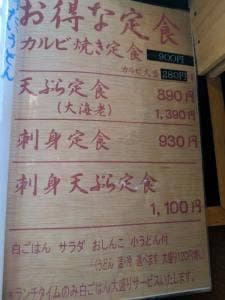 お得な定食
カルビ焼き定食 900円
カルビ大盛 280円
天ぷら定食 890円
(大海老) 1,390円
刺身定食 930円
刺身天ぷら定食
1,100円
白ごはん サラダ おしんこ 小うどん付
＊ランチタイムのみ白ごはん大盛りサービスいたします。